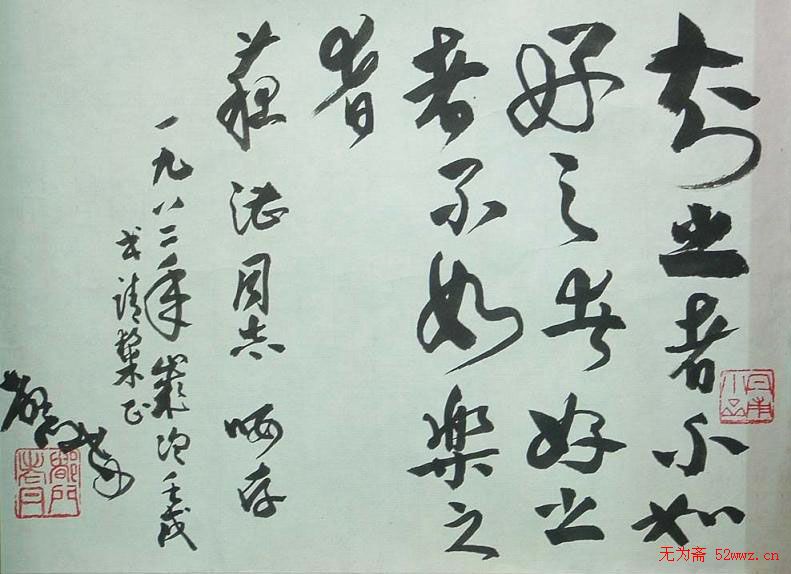 知之者不如
好之者好之
者不如樂之
者
同志哂存
一九八二年歲次壬戌
請正
无为斋 52wwz.cn